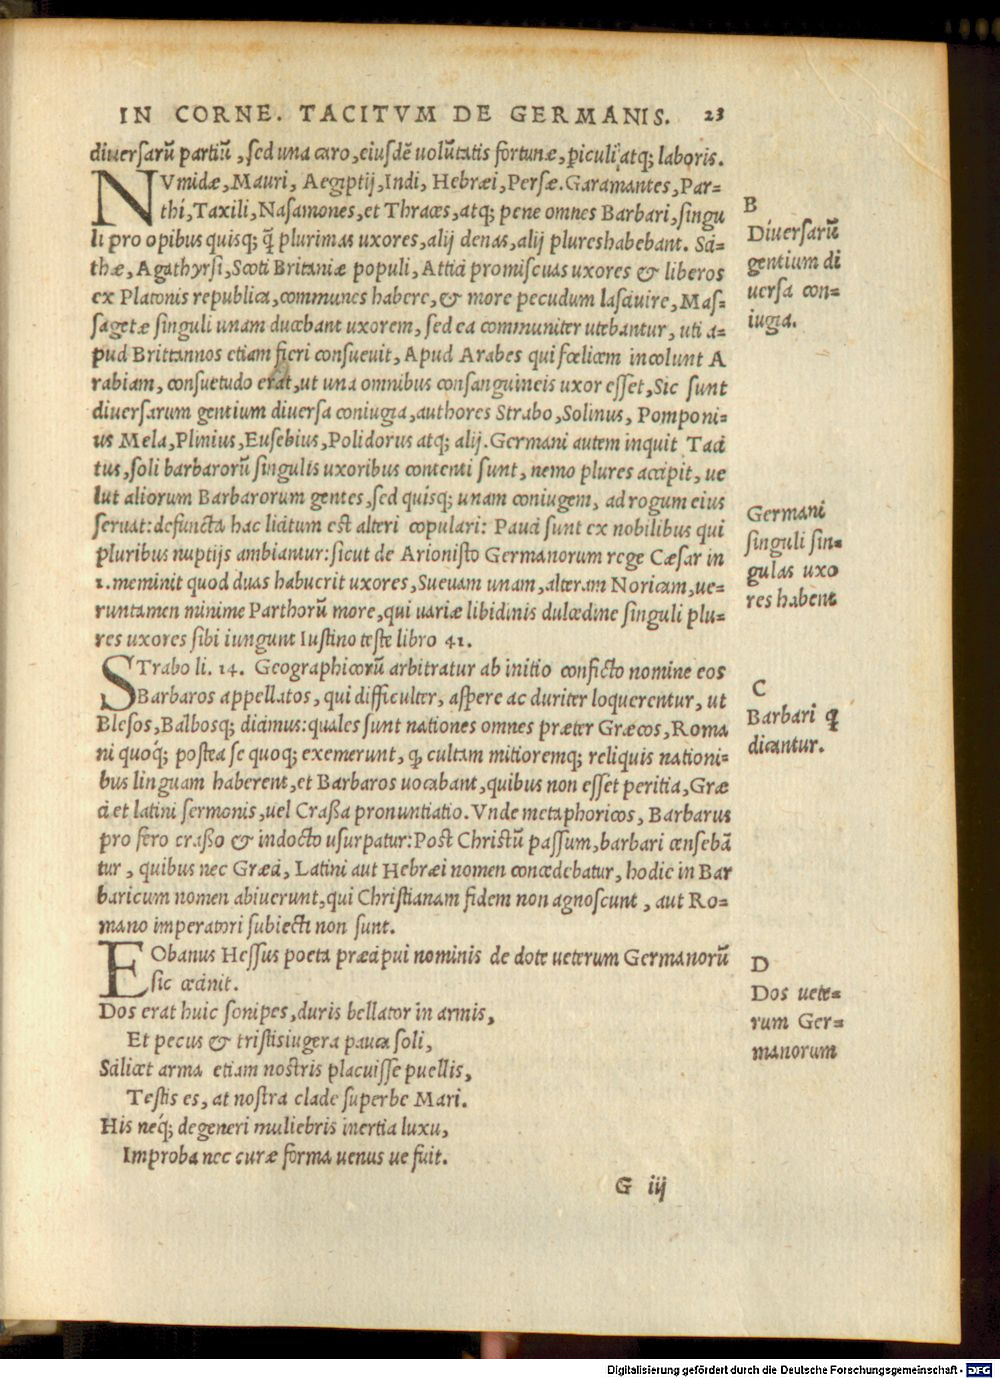 IN CORNE. TACITVM DE GERMANIS. 23
diuersarũ partiũ, sed una caro, eiusdẽ uolũtatis fortunæ, piculi atq; laboris.
NVmidæ, Mauri, Aegiptij, Indi, Hebræi, Persæ. Garamantes, Par-
thi, Taxili, Nasamones, et Thraces, atq; pene omnes Barbari, singu
li pro opibus quisq; q̃ plurimas uxores, alij denas, alij plures habebant. Sci-
thæ, Agathyrsi, Scoti Britaniæ populi, Attici promiscuas uxores & liberos
ex Platonis republica, communes habere, & more pecudum lasciuire, Mas-
sagetæ singuli unam ducebant uxorem, sed ea communiter utebantur, uti a-
pud Brittannos etiam fieri consueuit, Apud Arabes qui fœlicem incolunt A
rabiam, consuetudo erat, ut una omnibus consanguineis uxor esset, Sic sunt
diuersarum gentium diuersa coniugia, authores Strabo, Solinus, Pomponi-
us Mela, Plinius, Eusebius, Polidorus atq; alij. Germani autem inquit Taci
tus, soli barbarorũ singulis uxoribus contenti sunt, nemo plures accipit, ue
lut aliorum Barbarorum gentes, sed quisq; unam coniugem, ad rogum eius
seruat: defuncta hac licitum est alteri copulari: Pauci sunt ex nobilibus qui
pluribus nuptijs ambiantur: sicut de Arionisto Germanorum rege Cæsar in
1. meminit quod duas habuerit uxores, Sueuam unam, alteram Noricam, ue-
runtamen minime Parthorũ more, qui uariæ libidinis dulcedine singuli plu-
res uxores sibi iungunt Iustino teste libro 41.
STrabo li. 14. Geographicorũ arbitratur ab initio conficto nomine eos
Barbaros appellatos, qui difficulter, aspere ac duriter loquerentur, ut
Blesos, Balbosq; dicimus: quales sunt nationes omnes præter Græcos, Roma
ni quoq́; postea se quoq; exemerunt, q, cultam mitioremq; reliquis nationi-
bus linguam haberent, et Barbaros uocabant, quibus non esset peritia, Græ
ci et latini sermonis, uel Craßa pronuntiatio. Vnde metaphoricos, Barbarus
pro fero craßo & indocto usurpatur: Post Christũ passum, barbari censebã
tur, quibus nec Græci, Latini aut Hebræi nomen concedebatur, hodie in Bar
baricum nomen abiuerunt, qui Christianam fidem non agnoscunt, aut Ro-
mano imperatori subiecti non sunt.
EObanus Hessus poeta præcipui nominis de dote ueterum Germanorũ
sic cecinit.
Dos erat huic sonipes, duris bellator in armis,
Et pecus & tristis iugera pauca soli,
Scilicet arma etiam nostris placuisse puellis,
Testis es, at nostra clade superbe Mari.
His neq́; degeneri muliebris inertia luxu,
Improba nec curæ forma uenus ue fuit.
G iij
B
Diuersarũ
gentium di
uersa con-
iugia.
Germani
singuli sin-
gulas uxo
res habent
C
Barbari q
dicantur.
D
Dos uete-
rum Ger-
manorum
Digitalisierung gefördert durch die Deutsche Forschungsgemeinschaft - DFG